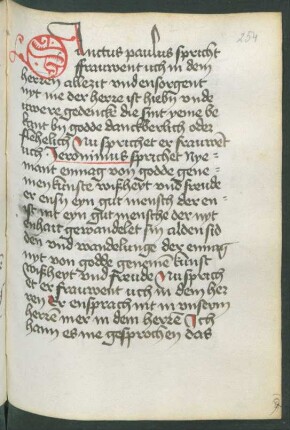 254
Sanctus paulus spricht
frauwent uch in dem
herren allezit vnd ensorgent
nyt me der herre ist hiebij vnde
uwere gedencke die sint yeme be
kant by godde danckberlich oder
flehelich Nu sprichet er frauwet
uch Jeronimus sprichet Nye-
mant enmag von godde gene-
men kunste wißheyt vnd freude
er ensy eyn gut mensch der en-
ist nit eyn gut mensche der nyt
enhait gewandelet sin alden sid
den vnd wandelunge der enmag
nyt von godde genemen kunst
wißheyt vnd freude Nu sprich
et er frauwent uch in dem her
ren Er ensprach nit in vnserm
herren mer in dem herren Ich
han es me gesprochen das